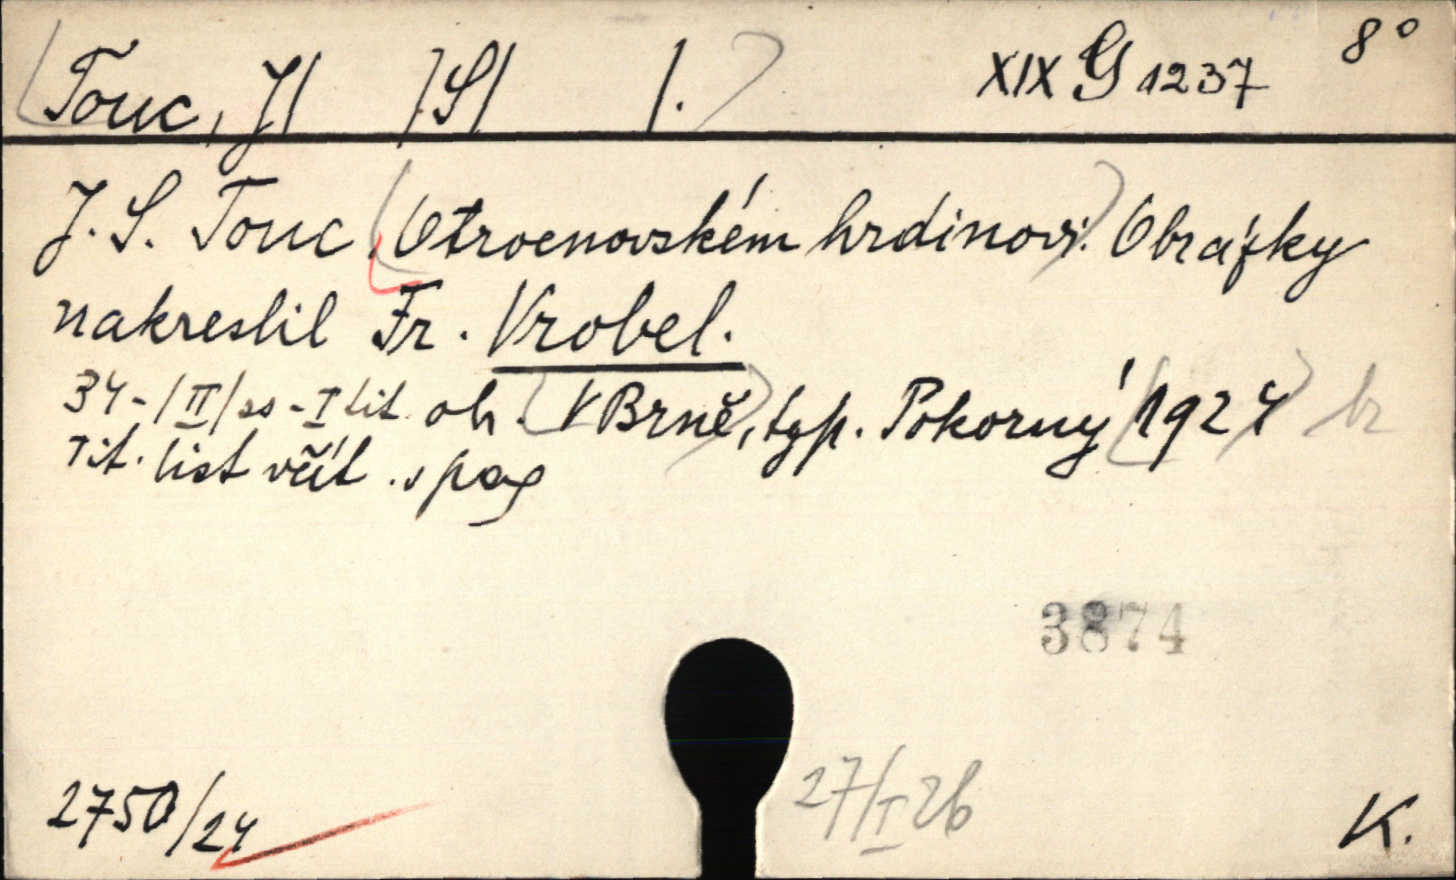 Touc, J/ /S/ /. XIX G 1237 8°
J. S. Touc, Otrocnovském hrdinovi. Obrázky
nakreslil Fr. Vrobel.
34-/II/ ss - I tit. ob. V Brně, typ. Pokorný 1924 br
Tit. list včít. s pag
3874
2750/24 27/I 26 K.